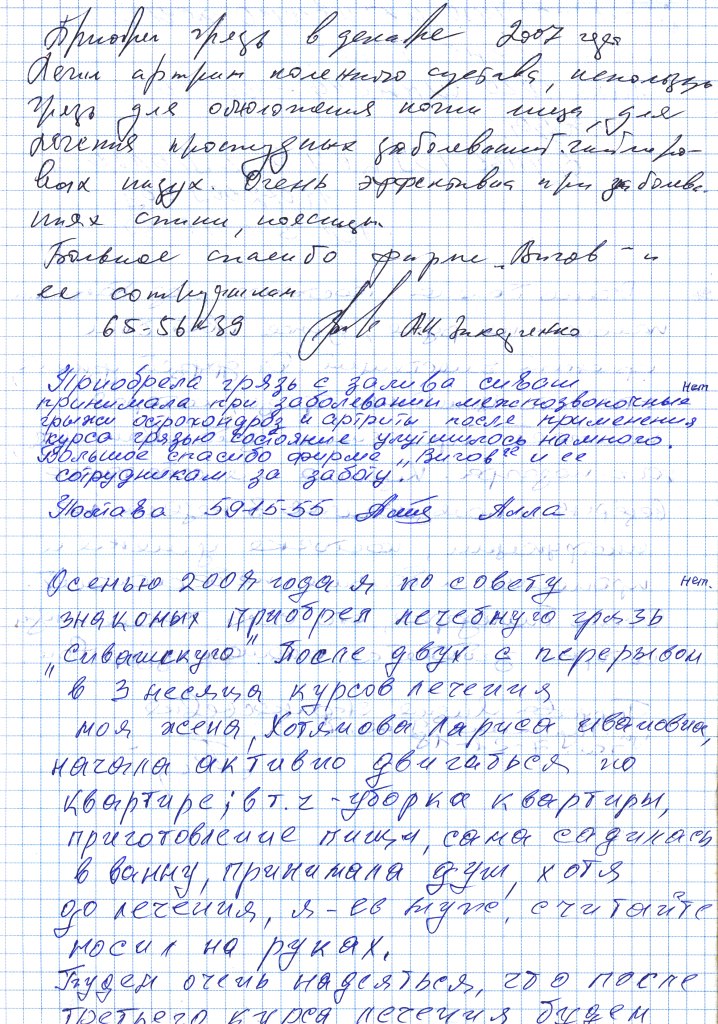 Приобрел грязь в декабре 2007 года
Лечил артрит коленного сустава, использую
грязь для омоложения кожи лица, для
лечения простудных заболеваний. гайморо-
вых пазух. Очень эффективна при заболева-
ниях спины, поясницы.
Большое спасибо фирме „Вигов" и
ее сотрудникам
65-56-39 А.И.
Приобрела грязь с залива сиваш нет
принимала при заболевании межпозвоночные
грыжи острохондроз и артриты после применения
курса грязью состояние улутшилось намного.
Большое спасибо фирма „Вигов" и ее
сотрудникам за заботу.
Полтава 59-15-55 Алла
Осенью 2007 года я по совету нет.
знакомых приобрел лечебную грязь
„Сивашскую". После двух с перерывом
в 3 месяца курсов лечения
моя жена, Хотянова Лариса Ивановна,
начала активно двигаться по
квартире; в т.ч - уборка квартиры,
приготовление пищи, сама садилась
в ванну, принимала душ, хотя
до лечения, я - её муж, считайте
носил на руках.
Будем очень надеяться, что после
третьего курса лечения будем